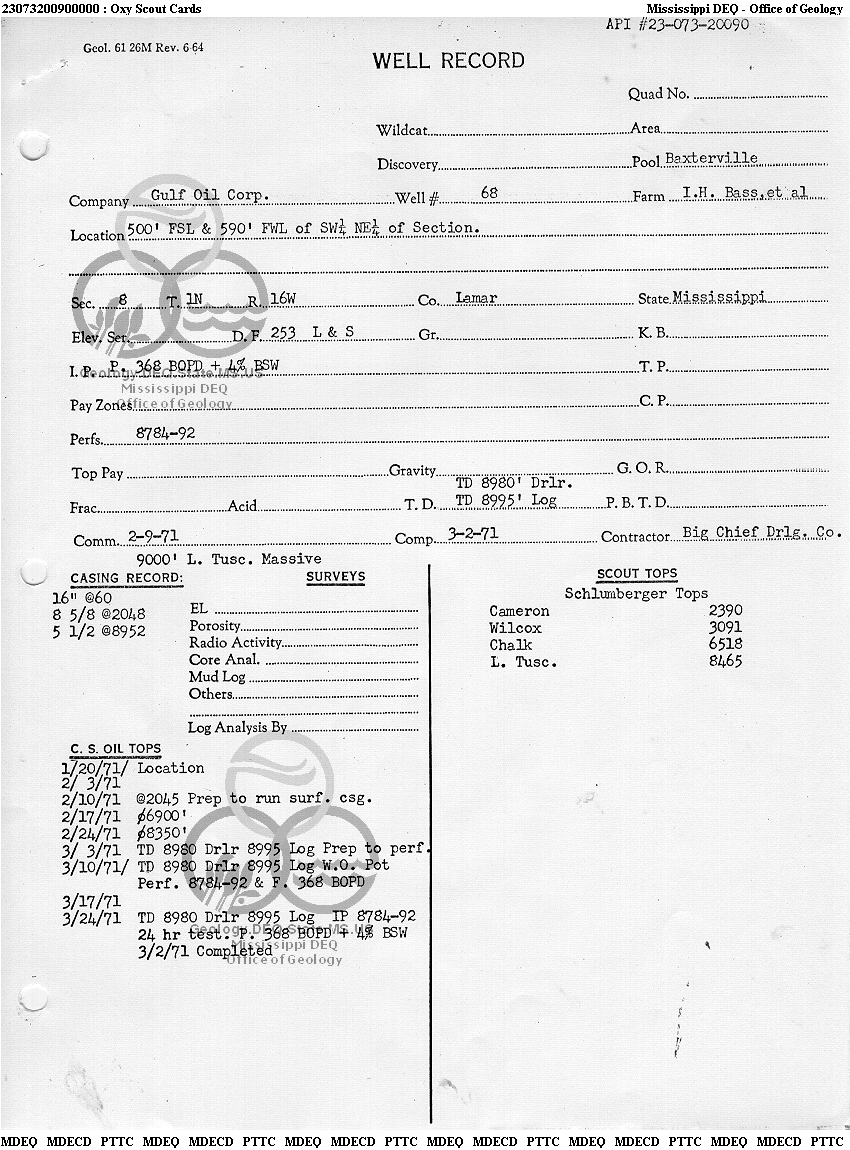 23073200900000 : Oxy Scout Cards Mississippi DEQ - Office of Geology
API #23-073-20090
Geol. 61 26M Rev. 6-64
WELL RECORD
Quad No.
Wildcat Area
Discovery Pool Baxterville
Company Gulf Oil Corp. Well # 68 Farm I.H. Bass, et al
Location 500' FSL & 590' FWL of SW¼ NE¼ of Section.
Sec. 8 T. 1N R. 16W Co. Lamar State Mississippi
Elev. Ser. D. F. 253 L & S Gr. K. B.
I. P. P. 368 BOPD + 4% BSW T. P.
Geology.DEQ.State.MS.US
Mississippi DEQ
Office of Geology
Pay Zones C. P.
Perfs. 8784-92
Top Pay Gravity G. O. R.
TD 8980' Drlr.
Frac. Acid T. D. TD 8995' Log P. B. T. D.
Comm. 2-9-71 Comp. 3-2-71 Contractor Big Chief Drlg. Co.
9000' L. Tusc. Massive
CASING RECORD:
16" @60
8 5/8 @2048
5 1/2 @8952
SURVEYS
EL
Porosity
Radio Activity
Core Anal.
Mud Log
Others
Log Analysis By
SCOUT TOPS
Schlumberger Tops
Cameron 2390
Wilcox 3091
Chalk 6518
L. Tusc. 8465
C. S. OIL TOPS
1/20/71/ Location
2/ 3/71
2/10/71 @2045 Prep to run surf. csg.
2/17/71 ∅6900'
2/24/71 ∅8350'
3/ 3/71 TD 8980 Drlr 8995 Log Prep to perf.
3/10/71/ TD 8980 Drlr 8995 Log W.O. Pot
Perf. 8784-92 & F. 368 BOPD
3/17/71
3/24/71 TD 8980 Drlr 8995 Log IP 8784-92
24 hr test: P. 368 BOPD + 4% BSW
3/2/71 Completed
Geology.DEQ.State.MS.US
Mississippi DEQ
Office of Geology
MDEQ MDECD PTTC MDEQ MDECD PTTC MDEQ MDECD PTTC MDEQ MDECD PTTC MDEQ MDECD PTTC MDEQ MDECD PTTC